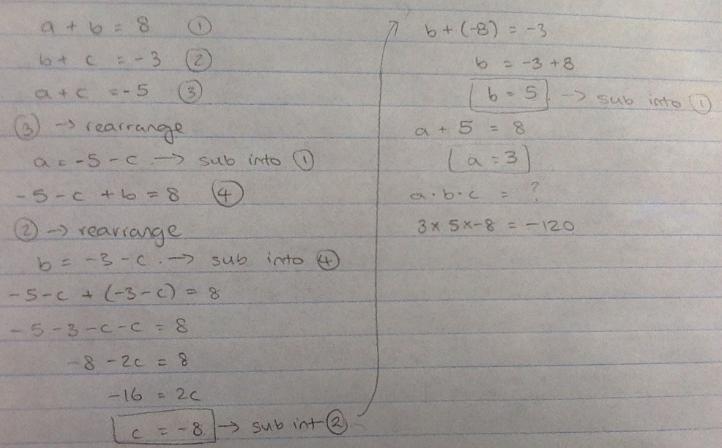 a + b = 8 ①
b + c = -3 ②
a + c = -5 ③
③ → rearrange
a = -5 - c → sub into ①
-5 - c + b = 8 ④
② → rearrange
b = -3 - c . → sub into ④
-5 - c + (-3 - c) = 8
-5 - 3 - c - c = 8
-8 - 2c = 8
-16 = 2c
c = -8 → sub int ②
b + (-8) = -3
b = -3 + 8
b = 5 → sub into ①
a + 5 = 8
a = 3
a · b · c = ?
3 × 5 × -8 = -120